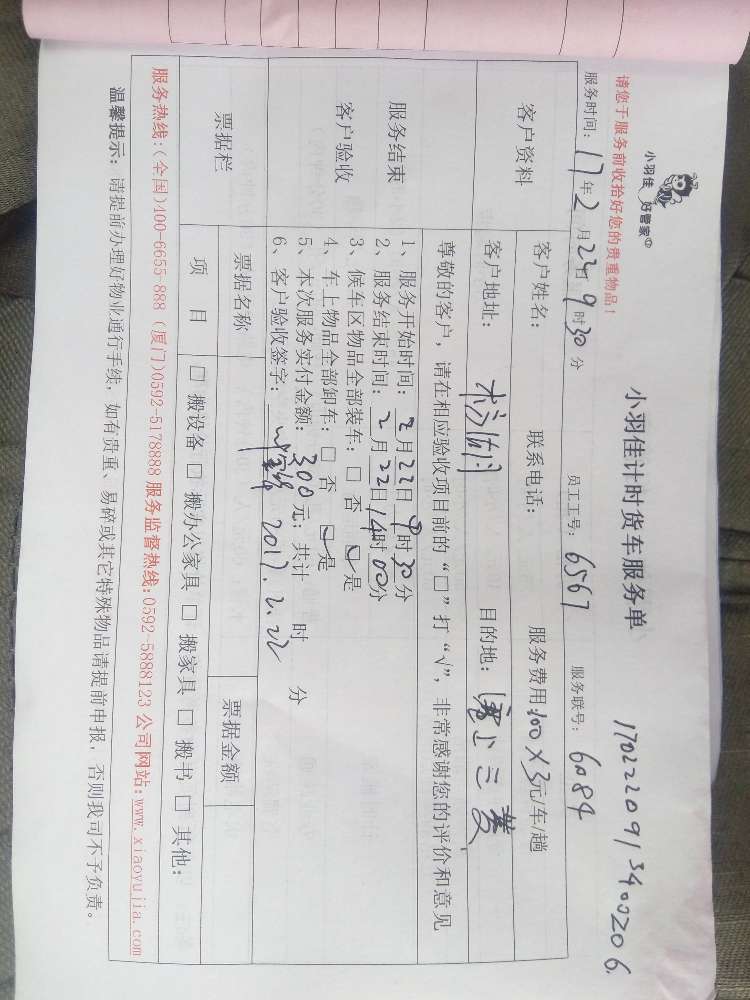 小羽佳 好管家
请您于服务前收拾好您的贵重物品！
小羽佳计时货车服务单
1702220913400206
服务时间：17年2月22日9时30分 员工工号：6567 服务联号：6084
客户资料
客户姓名： 联系电话： 服务费用：100×3元/车/趟
客户地址： 目的地：
尊敬的客户，请在相应验收项目前的“□”打“√”，非常感谢您的评价和意见
服务结束
客户验收
1、服务开始时间：2月22日9时30分
2、服务结束时间：2月22日14时00分
3、候车区物品全部装车：□ 否 ☑ 是
4、车上物品全部卸车：□ 否 ☑ 是
5、本次服务实付金额：300元；共计 时 分
6、客户验收签字： 2017.2.22
票据栏
票据名称 票据金额
项 目 □ 搬设备 □ 搬办公家具 □ 搬家具 □ 搬书 □ 其他：
服务热线：(全国)400-6655-888 (厦门)0592-5178888 服务监督热线：0592-5888123 公司网站：www.xiaoyujia.com
温馨提示：请提前办理好物业通行手续，如有贵重、易碎或其它特殊物品请提前申报，否则我司不予负责。